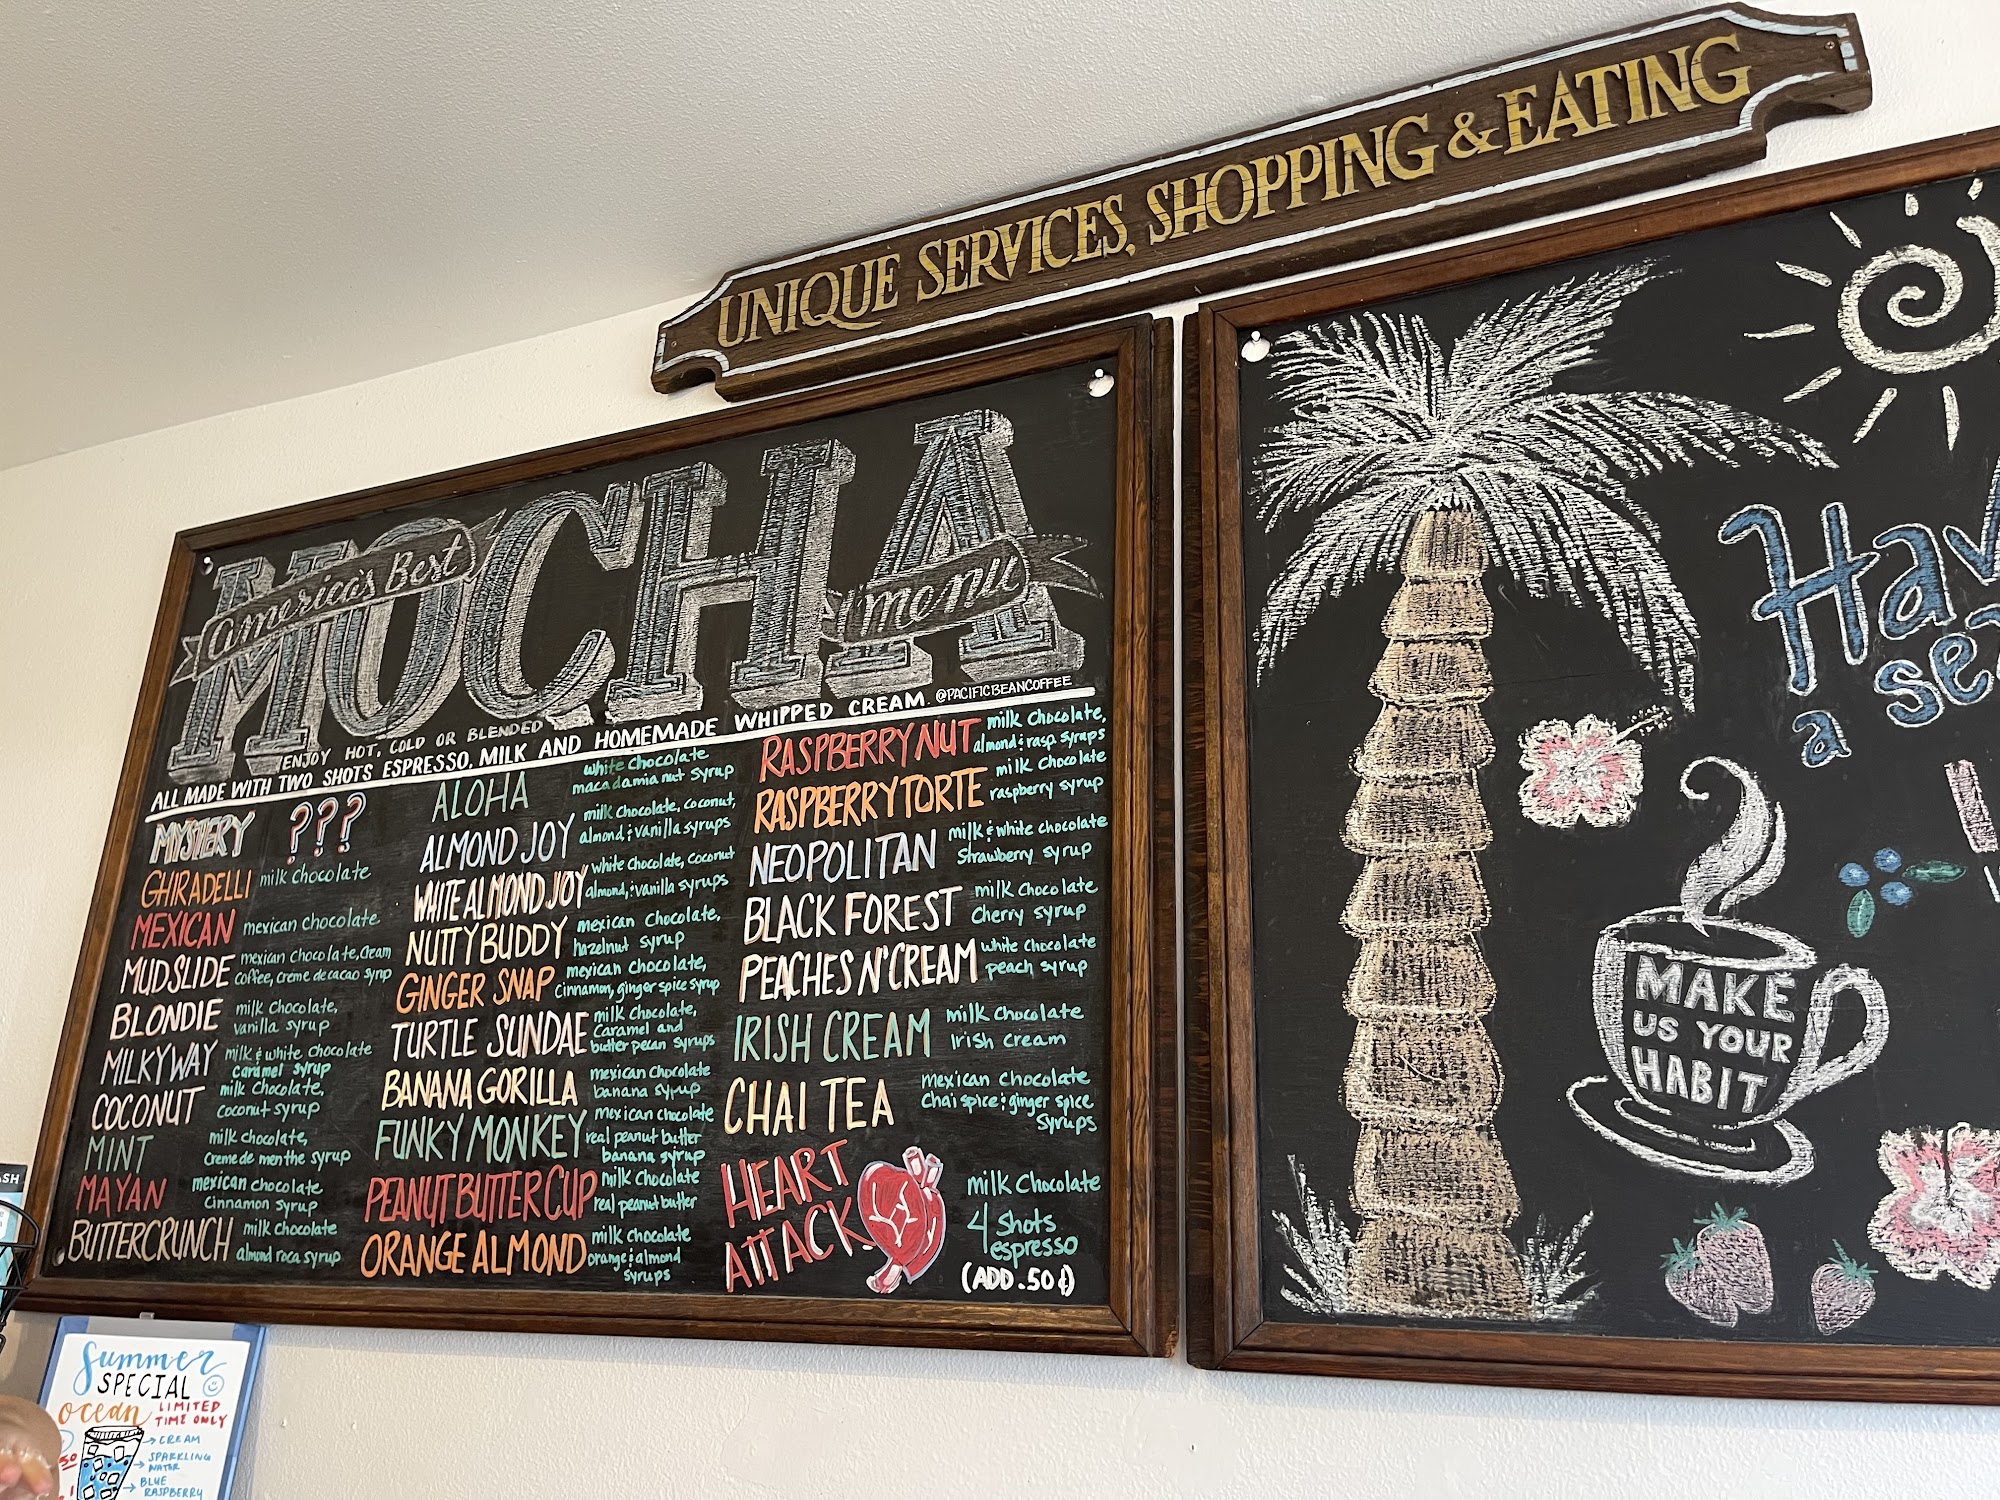 UNIQUE SERVICES, SHOPPING & EATING
America's Best
MOCHA
menu
ENJOY HOT, COLD OR BLENDED
@PACIFICBEANCOFFEE
ALL MADE WITH TWO SHOTS ESPRESSO, MILK AND HOMEMADE WHIPPED CREAM.
MYSTERY ???
GHIRADELLI milk chocolate
MEXICAN mexican chocolate
MUDSLIDE mexican chocolate, cream
coffee, creme de cacao syrup
BLONDIE milk chocolate,
vanilla syrup
MILKY WAY milk & white chocolate
caramel syrup
COCONUT milk chocolate,
coconut syrup
MINT milk chocolate,
creme de menthe syrup
MAYAN mexican chocolate
cinnamon syrup
BUTTERCRUNCH milk chocolate
almond roca syrup
ALOHA white chocolate
macadamia nut syrup
ALMOND JOY milk chocolate, coconut,
almond & vanilla syrups
WHITE ALMOND JOY white chocolate, coconut
almond, & vanilla syrups
NUTTY BUDDY mexican chocolate,
hazelnut syrup
GINGER SNAP mexican chocolate,
cinnamon, ginger spice syrup
TURTLE SUNDAE milk chocolate,
caramel and
butter pecan syrups
BANANA GORILLA mexican chocolate
banana syrup
FUNKY MONKEY mexican chocolate
real peanut butter
banana syrup
PEANUT BUTTER CUP milk chocolate
real peanut butter
ORANGE ALMOND milk chocolate
orange & almond
syrups
RASPBERRY NUT milk chocolate,
almond & rasp. syraps
RASPBERRY TORTE milk chocolate
raspberry syrup
NEOPOLITAN milk & white chocolate
strawberry syrup
BLACK FOREST milk chocolate
cherry syrup
PEACHES N' CREAM white chocolate
peach syrup
IRISH CREAM milk chocolate
irish cream
CHAI TEA mexican chocolate
chai spice & ginger spice
syrups
HEART
ATTACK
milk chocolate
4 shots
espresso
(ADD .50¢)
Have
a
MAKE
US YOUR
HABIT
Summer
SPECIAL
ocean LIMITED
TIME ONLY
CREAM
SPARKLING
WATER
BLUE
RASPBERRY